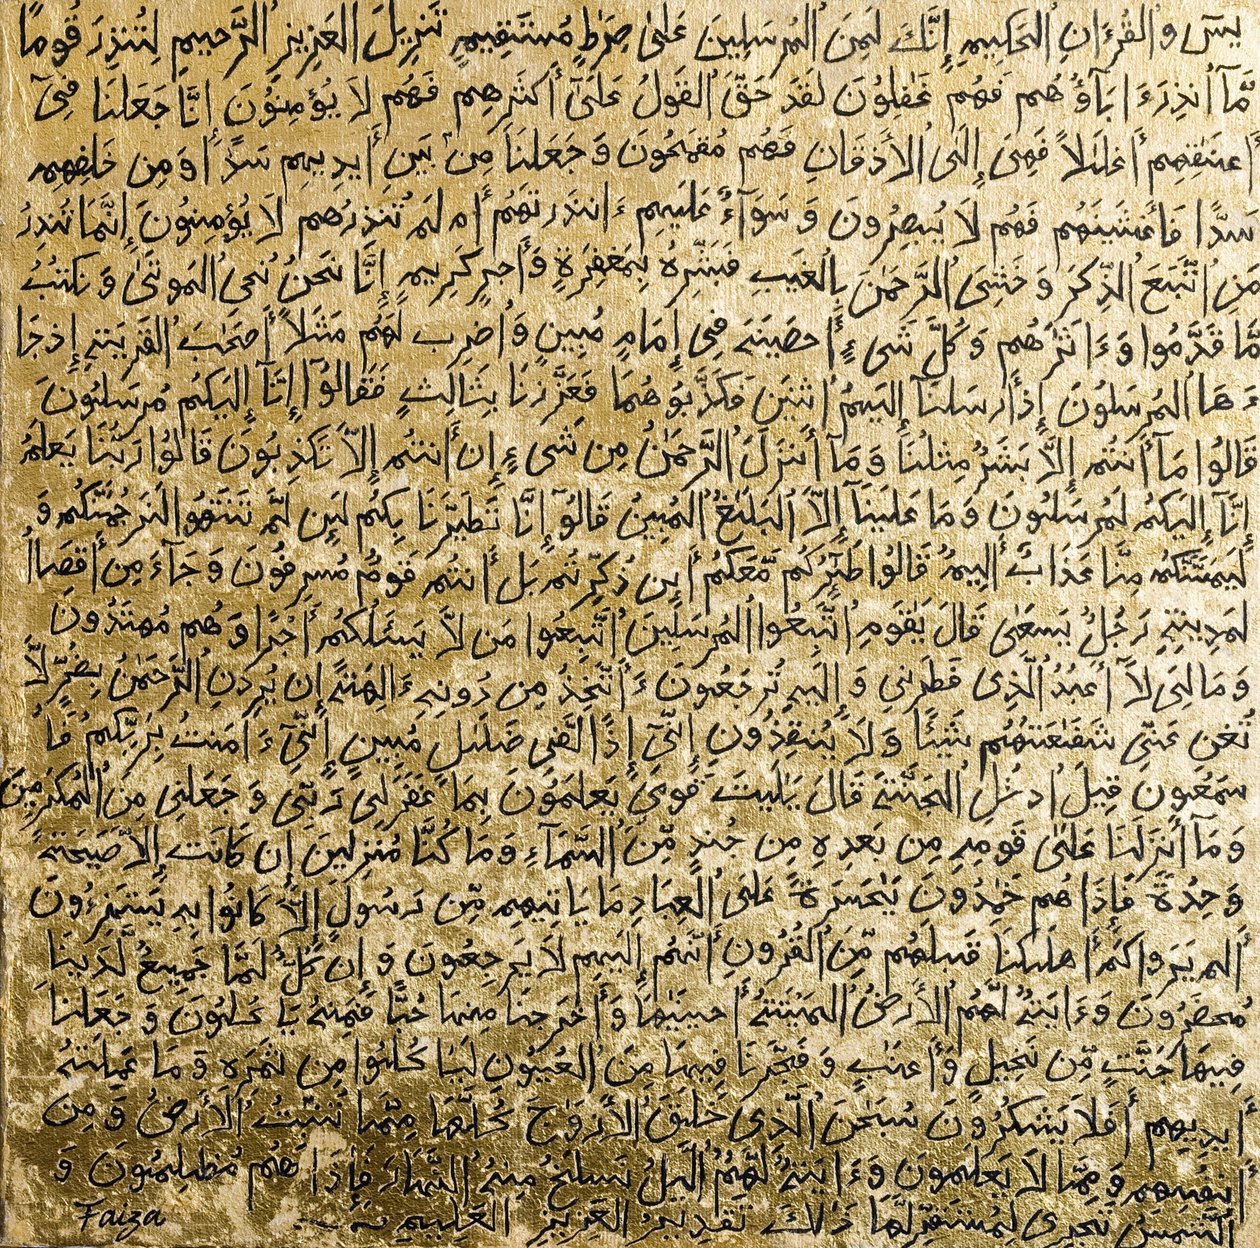 يسٓ وَٱلْقُرْءَانِ ٱلْحَكِيمِ إِنَّكَ لَمِنَ ٱلْمُرْسَلِينَ عَلَىٰ صِرَٰطٍ مُّسْتَقِيمٍ تَنزِيلَ ٱلْعَزِيزِ ٱلرَّحِيمِ لِتُنذِرَ قَوْمًا
مَّآ أُنذِرَ ءَابَآؤُهُمْ فَهُمْ غَٰفِلُونَ لَقَدْ حَقَّ ٱلْقَوْلُ عَلَىٰٓ أَكْثَرِهِمْ فَهُمْ لَا يُؤْمِنُونَ إِنَّا جَعَلْنَا فِىٓ
أَعْنَٰقِهِمْ أَغْلَٰلًا فَهِىَ إِلَى ٱلْأَذْقَانِ فَهُم مُّقْمَحُونَ وَجَعَلْنَا مِنۢ بَيْنِ أَيْدِيهِمْ سَدًّا وَمِنْ خَلْفِهِمْ
سَدًّا فَأَغْشَيْنَٰهُمْ فَهُمْ لَا يُبْصِرُونَ وَسَوَآءٌ عَلَيْهِمْ ءَأَنذَرْتَهُمْ أَمْ لَمْ تُنذِرْهُمْ لَا يُؤْمِنُونَ إِنَّمَا تُنذِرُ
مَنِ ٱتَّبَعَ ٱلذِّكْرَ وَخَشِىَ ٱلرَّحْمَٰنَ بِٱلْغَيْبِ فَبَشِّرْهُ بِمَغْفِرَةٍ وَأَجْرٍ كَرِيمٍ إِنَّا نَحْنُ نُحْىِ ٱلْمَوْتَىٰ وَنَكْتُبُ
مَا قَدَّمُوا۟ وَءَاثَٰرَهُمْ وَكُلَّ شَىْءٍ أَحْصَيْنَٰهُ فِىٓ إِمَامٍ مُّبِينٍ وَٱضْرِبْ لَهُم مَّثَلًا أَصْحَٰبَ ٱلْقَرْيَةِ إِذْ جَآ
ءَهَا ٱلْمُرْسَلُونَ إِذْ أَرْسَلْنَآ إِلَيْهِمُ ٱثْنَيْنِ فَكَذَّبُوهُمَا فَعَزَّزْنَا بِثَالِثٍ فَقَالُوٓا۟ إِنَّآ إِلَيْكُم مُّرْسَلُونَ
قَالُوا۟ مَآ أَنتُمْ إِلَّا بَشَرٌ مِّثْلُنَا وَمَآ أَنزَلَ ٱلرَّحْمَٰنُ مِن شَىْءٍ إِنْ أَنتُمْ إِلَّا تَكْذِبُونَ قَالُوا۟ رَبُّنَا يَعْلَمُ
إِنَّآ إِلَيْكُمْ لَمُرْسَلُونَ وَمَا عَلَيْنَآ إِلَّا ٱلْبَلَٰغُ ٱلْمُبِينُ قَالُوٓا۟ إِنَّا تَطَيَّرْنَا بِكُمْ لَئِن لَّمْ تَنتَهُوا۟ لَنَرْجُمَنَّكُمْ وَ
لَيَمَسَّنَّكُم مِّنَّا عَذَابٌ أَلِيمٌ قَالُوا۟ طَٰٓئِرُكُم مَّعَكُمْ أَئِن ذُكِّرْتُم بَلْ أَنتُمْ قَوْمٌ مُّسْرِفُونَ وَجَآءَ مِنْ أَقْصَا ٱ
لْمَدِينَةِ رَجُلٌ يَسْعَىٰ قَالَ يَٰقَوْمِ ٱتَّبِعُوا۟ ٱلْمُرْسَلِينَ ٱتَّبِعُوا۟ مَن لَّا يَسْـَٔلُكُمْ أَجْرًا وَهُم مُّهْتَدُونَ
وَمَا لِىَ لَآ أَعْبُدُ ٱلَّذِى فَطَرَنِى وَإِلَيْهِ تُرْجَعُونَ ءَأَتَّخِذُ مِن دُونِهِۦٓ ءَالِهَةً إِن يُرِدْنِ ٱلرَّحْمَٰنُ بِضُرٍّ لَّا
تُغْنِ عَنِّى شَفَٰعَتُهُمْ شَيْـًٔا وَلَا يُنقِذُونِ إِنِّىٓ إِذًا لَّفِى ضَلَٰلٍ مُّبِينٍ إِنِّىٓ ءَامَنتُ بِرَبِّكُمْ فَٱ
سْمَعُونِ قِيلَ ٱدْخُلِ ٱلْجَنَّةَ قَالَ يَٰلَيْتَ قَوْمِى يَعْلَمُونَ بِمَا غَفَرَ لِى رَبِّى وَجَعَلَنِى مِنَ ٱلْمُكْرَمِينَ
وَمَآ أَنزَلْنَا عَلَىٰ قَوْمِهِۦ مِنۢ بَعْدِهِۦ مِن جُندٍ مِّنَ ٱلسَّمَآءِ وَمَا كُنَّا مُنزِلِينَ إِن كَانَتْ إِلَّا صَيْحَةً
وَٰحِدَةً فَإِذَا هُمْ خَٰمِدُونَ يَٰحَسْرَةً عَلَى ٱلْعِبَادِ مَا يَأْتِيهِم مِّن رَّسُولٍ إِلَّا كَانُوا۟ بِهِۦ يَسْتَهْزِءُونَ
أَلَمْ يَرَوْا۟ كَمْ أَهْلَكْنَا قَبْلَهُم مِّنَ ٱلْقُرُونِ أَنَّهُمْ إِلَيْهِمْ لَا يَرْجِعُونَ وَإِن كُلٌّ لَّمَّا جَمِيعٌ لَّدَيْنَا
مُحْضَرُونَ وَءَايَةٌ لَّهُمُ ٱلْأَرْضُ ٱلْمَيْتَةُ أَحْيَيْنَٰهَا وَأَخْرَجْنَا مِنْهَا حَبًّا فَمِنْهُ يَأْكُلُونَ وَجَعَلْنَا
فِيهَا جَنَّٰتٍ مِّن نَّخِيلٍ وَأَعْنَٰبٍ وَفَجَّرْنَا فِيهَا مِنَ ٱلْعُيُونِ لِيَأْكُلُوا۟ مِن ثَمَرِهِۦ وَمَا عَمِلَتْهُ
أَيْدِيهِمْ أَفَلَا يَشْكُرُونَ سُبْحَٰنَ ٱلَّذِى خَلَقَ ٱلْأَزْوَٰجَ كُلَّهَا مِمَّا تُنۢبِتُ ٱلْأَرْضُ وَمِنْ
أَنفُسِهِمْ وَمِمَّا لَا يَعْلَمُونَ وَءَايَةٌ لَّهُمُ ٱلَّيْلُ نَسْلَخُ مِنْهُ ٱلنَّهَارَ فَإِذَا هُم مُّظْلِمُونَ وَ
ٱلشَّمْسُ تَجْرِى لِمُسْتَقَرٍّ لَّهَا ذَٰلِكَ تَقْدِيرُ ٱلْعَزِيزِ ٱلْعَلِيمِ
Faiza